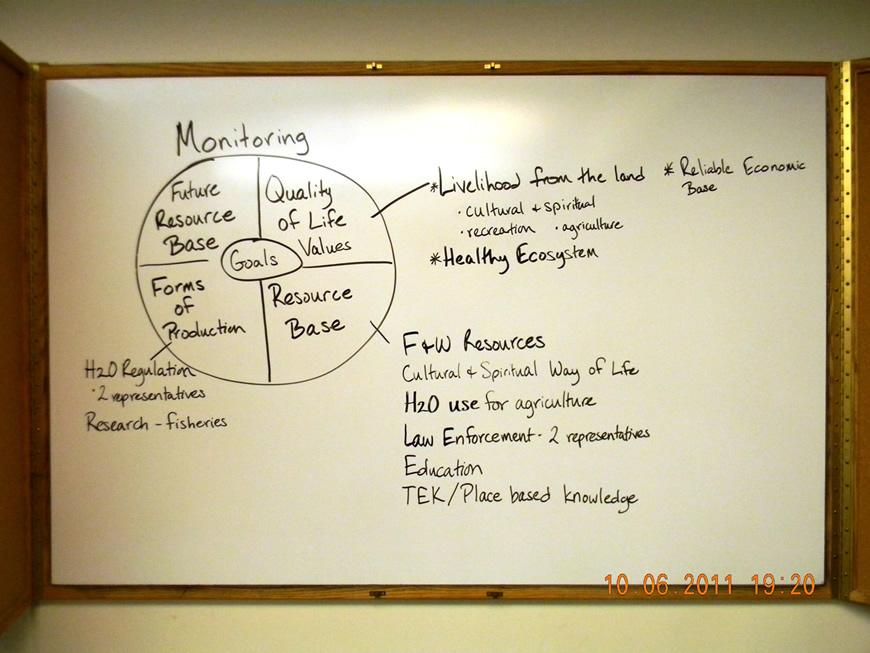 Monitoring
Future
Resource
Base
Quality
of Life
Values
Goals
Forms
of
Production
Resource
Base
H2O Regulation
· 2 representatives
Research - fisheries
*Livelihood from the land
· cultural & spiritual
· recreation · agriculture
*Healthy Ecosystem
* Reliable Economic
Base
F&W Resources
Cultural & Spiritual Way of Life
H2O use for agriculture
Law Enforcement - 2 representatives
Education
TEK/Place based knowledge
10.06.2011 19:20